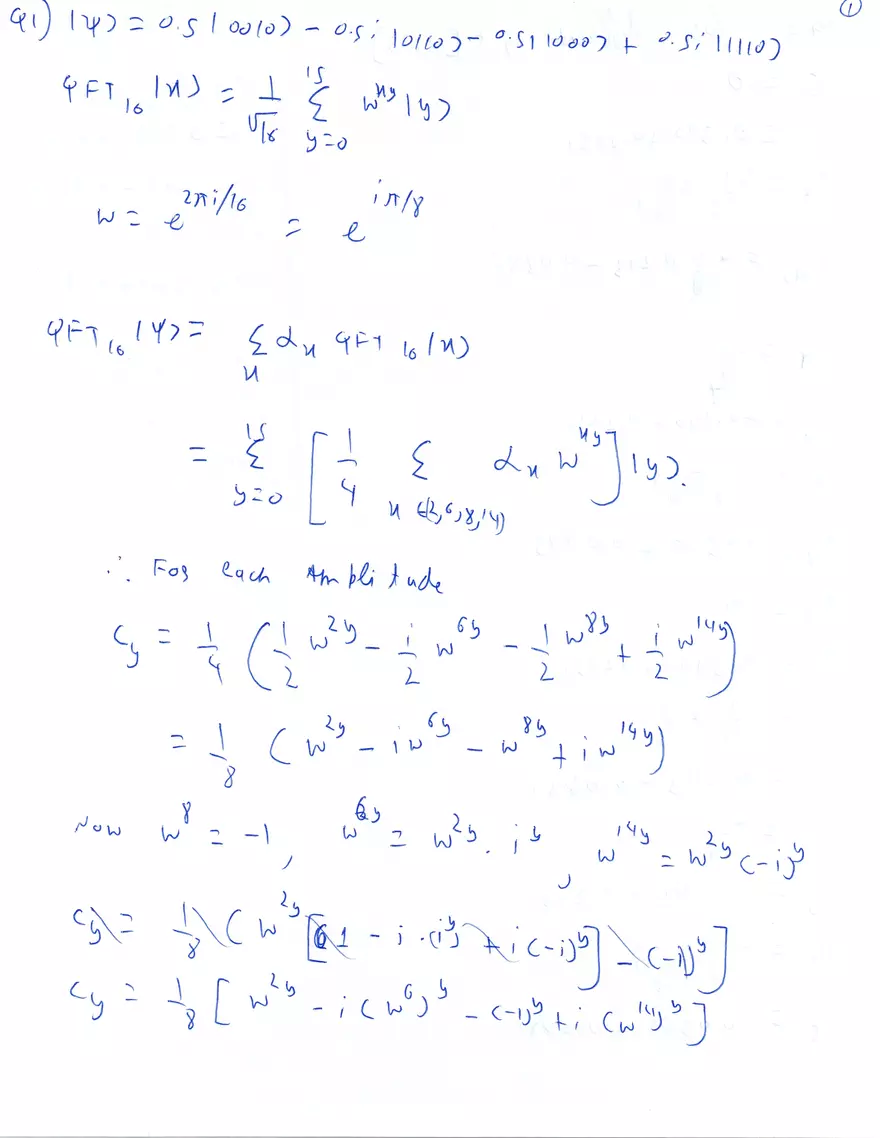 ①
Q1) |ψ⟩ = 0.5|0010⟩ - 0.5i|0110⟩ - 0.5|1000⟩ + 0.5i|1110⟩
QFT₁₆|x⟩ = 1/√16 Σ_{y=0}^{15} w^{xy}|y⟩
w = e^{2πi/16} = e^{iπ/8}
QFT₁₆|ψ⟩ = Σ_x α_x QFT₁₆|x⟩
= Σ_{y=0}^{15} [1/4 Σ_{x∈{2,6,8,14}} α_x w^{xy}]|y⟩.
∴ For each Amplitude
C_y = 1/4 (1/2 w^{2y} - i/2 w^{6y} - 1/2 w^{8y} + i/2 w^{14y})
= 1/8 (w^{2y} - i w^{6y} - w^{8y} + i w^{14y})
Now w^8 = -1, w^{6y} = w^{2y}. i^y, w^{14y} = w^{2y} (-i)^y
C_y = 1/8 (w^{2y} [1 - i·(i^y) + i(-i)^y] - (-1)^y]
C_y = 1/8 [w^{2y} - i(w^6)^y - (-1)^y + i(w^{14})^y]